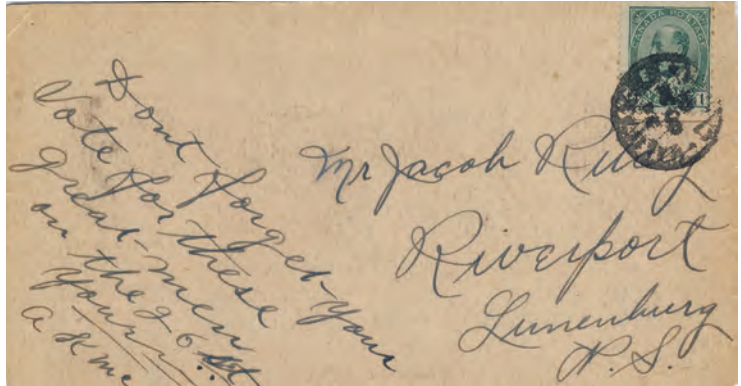 CANADA POSTAGE
1
Dont forget your
Vote for these
great men
on the 26
yours
Mr Jacob
Riverport
Lunenburg
N.S.